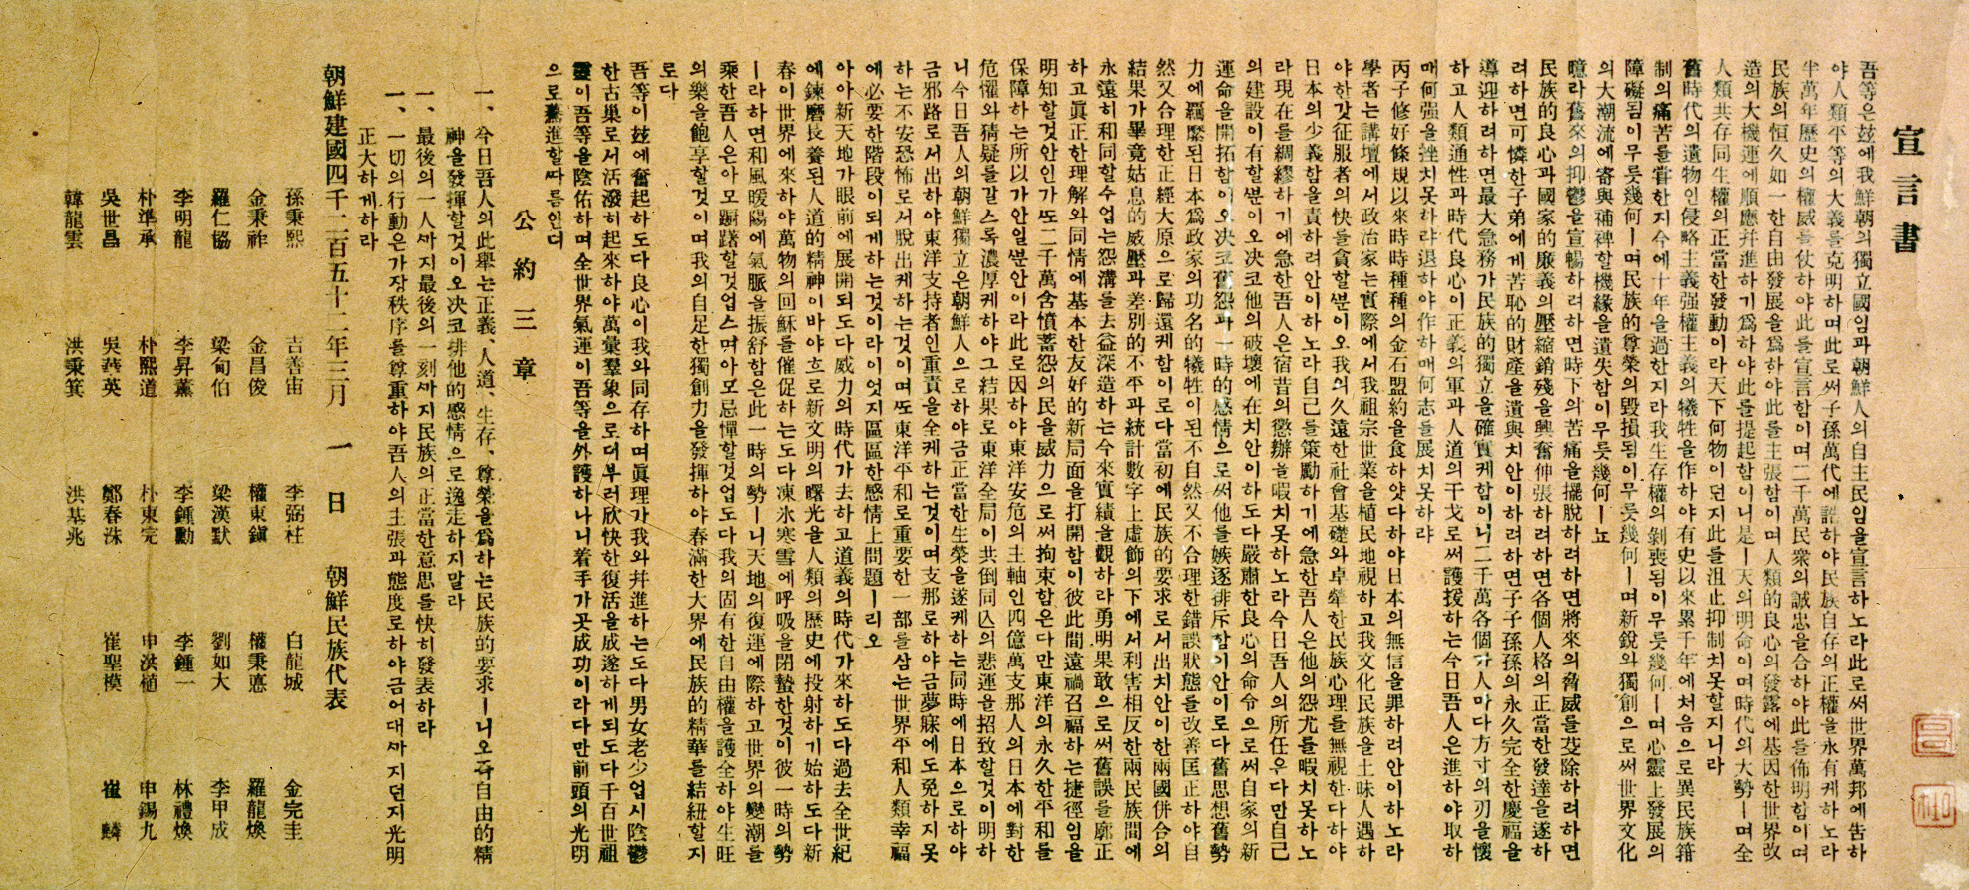 宣言書
吾等은玆에我鮮朝의獨立國임과朝鮮人의自主民임을宣言하노라此로써世界萬邦에告하
야人類平等의大義를克明하며此로써子孫萬代에誥하야民族自存의正權을永有케하노라
半萬年歷史의權威를仗하야此를宣言함이며二千萬民衆의誠忠을合하야此를佈明함이며
民族의恒久如一한自由發展을爲하야此를主張함이며人類的良心의發露에基因한世界改
造의大機運에順應幷進하기爲하야此를提起함이니是ㅣ天의明命이며時代의大勢ㅣ며全
人類共存同生權의正當한發動이라天下何物이던지此를沮止抑制치못할지니라
舊時代의遺物인侵略主義强權主義의犧牲을作하야有史以來累千年에처음으로異民族箝
制의痛苦를嘗한지今에十年을過한지라我生存權의剝喪됨이무릇幾何ㅣ며心靈上發展의
障礙됨이무릇幾何ㅣ며民族的尊榮의毀損됨이무릇幾何ㅣ며新銳와獨創으로써世界文化
의大潮流에寄與補裨할機緣을遺失함이무릇幾何ㅣ뇨
噫라舊來의抑鬱을宣暢하려하면時下의苦痛을擺脫하려하면將來의脅威를芟除하려하면
民族的良心과國家的廉義의壓縮銷殘을興奮伸張하려하면各個人格의正當한發達을遂하
려하면可憐한子弟에게苦恥的財産을遺與치안이하려하면子子孫孫의永久完全한慶福을
導迎하려하면最大急務가民族的獨立을確實케함이니二千萬各個가人마다方寸의刃을懷
하고人類通性과時代良心이正義의軍과人道의干戈로써護援하는今日吾人은進하야取하
매何强을挫치못하랴退하야作하매何志를展치못하랴
丙子修好條規以來時時種種의金石盟約을食하얏다하야日本의無信을罪하려안이하노라
學者는講壇에서政治家는實際에서我祖宗世業을植民地視하고我文化民族을土昧人遇하
야한갓征服者의快를貪할뿐이오我의久遠한社會基礎와卓犖한民族心理를無視한다하야
日本의少義함을責하려안이하노라自己를策勵하기에急한吾人은他의怨尤를暇치못하노
라現在를綢繆하기에急한吾人은宿昔의懲辦을暇치못하노라今日吾人의所任우다만自己
의建設이有할뿐이오決코他의破壞에在치안이하도다嚴肅한良心의命令으로써自家의新
運命을開拓함이오決코舊怨과一時的感情으로써他를嫉逐排斥함이안이로다舊思想舊勢
力에羈縻된日本爲政家의功名的犧牲이된不自然又不合理한錯誤狀態를改善匡正하야自
然又合理한正經大原으로歸還케함이로다當初에民族的要求로서出치안이한兩國併合의
結果가畢竟姑息的威壓과差別的不平과統計數字上虛飾의下에서利害相反한兩民族間에
永遠히和同할수업는怨溝를去益深造하는今來實績을觀하라勇明果敢으로써舊誤를廓正
하고眞正한理解와同情에基本한友好的新局面을打開함이彼此間遠禍召福하는捷徑임을
明知할것안인가또二千萬含憤蓄怨의民을威力으로써拘束함은다만東洋의永久한平和를
保障하는所以가안일뿐안이라此로因하야東洋安危의主軸인四億萬支那人의日本에對한
危懼와猜疑를갈스록濃厚케하야그結果로東洋全局이共倒同亡의悲運을招致할것이明하
니今日吾人의朝鮮獨立은朝鮮人으로하야금正當한生榮을遂케하는同時에日本으로하야
금邪路로서出하야東洋支持者인重責을全케하는것이며支那로하야금夢寐에도免하지못
하는不安恐怖로서脫出케하는것이며또東洋平和로重要한一部를삼는世界平和人類幸福
에必要한階段이되게하는것이라이엇지區區한感情上問題ㅣ리오
아아新天地가眼前에展開되도다威力의時代가去하고道義의時代가來하도다過去全世紀
에鍊磨長養된人道的精神이바야흐로新文明의曙光을人類의歷史에投射하기始하도다新
春이世界에來하야萬物의回穌를催促하는도다凍氷寒雪에呼吸을閉蟄한것이彼一時의勢
ㅣ라하면和風暖陽에氣脈을振舒함은此一時의勢ㅣ니天地의復運에際하고世界의變潮를
乘한吾人은아모躕躇할것업스며아모忌憚할것업도다我의固有한自由權을護全하야生旺
의樂을飽享할것이며我의自足한獨創力을發揮하야春滿한大界에民族的精華를結紐할지
로다
吾等이玆에奮起하도다良心이我와同存하며眞理가我와幷進하는도다男女老少업시陰鬱
한古巢로서活潑히起來하야萬彙羣象으로더부러欣快한復活을成遂하게되도다千百世祖
靈이吾等을陰佑하며全世界氣運이吾等을外護하나니着手가곳成功이라다만前頭의光明
으로驀進할따름인뎌
公約三章
一、今日吾人의此擧는正義、人道、生存、尊榮을爲하는民族的要求ㅣ니오즉自由的精
神을發揮할것이오決코排他的感情으로逸走하지말라
一、最後의一人까지最後의一刻까지民族의正當한意思를快히發表하라
一、一切의行動은가장秩序를尊重하야吾人의主張과態度로하야금어대까지던지光明
正大하게하라
朝鮮建國四千二百五十二年三月一日 朝鮮民族代表
孫秉熙 吉善宙 李弼柱 白龍城 金完圭
金秉祚 金昌俊 權東鎭 權秉悳 羅龍煥
羅仁協 梁甸伯 梁漢默 劉如大 李甲成
李明龍 李昇薰 李鍾勳 李鍾一 林禮煥
朴準承 朴熙道 朴東完 申洪植 申錫九
吳世昌 吳華英 鄭春洙 崔聖模 崔麟
韓龍雲 洪秉箕 洪基兆